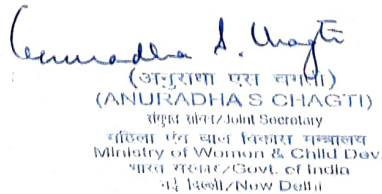 Anuradha S. Chagti
(अनुराधा एस चगती)
(ANURADHA S CHAGTI)
संयुक्त सचिव/Joint Secretary
महिला एवं बाल विकास मन्त्रालय
Ministry of Women & Child Dev.
भारत सरकार/Govt. of India
नई दिल्ली/New Delhi